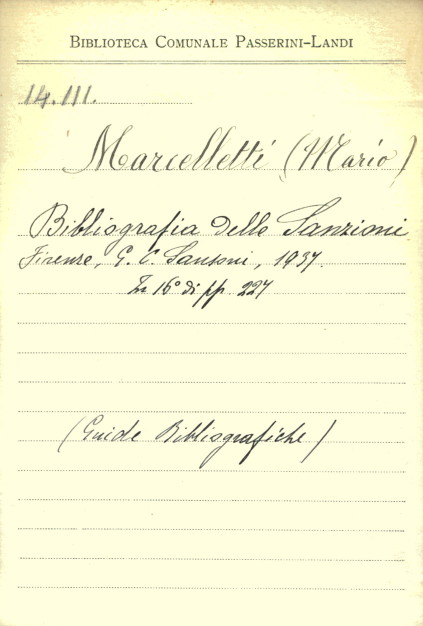 BIBLIOTECA COMUNALE PASSERINI-LANDI
14.III.
Marcelletti (Mario)
Bibliografia delle Sanzioni
Firenze, G. C. Sansoni, 1937.
In 16° di pp. 227
(Guide Bibliografiche)